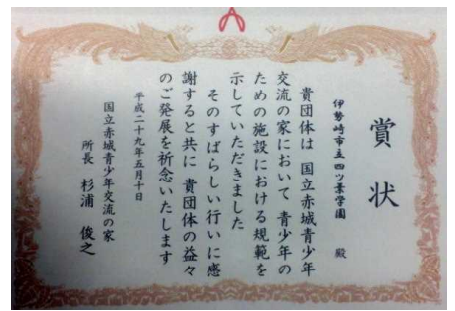 賞状
伊勢崎市立四ツ葉学園 殿
貴団体は 国立赤城青少年
交流の家において 青少年の
ための施設における規範を
示していただきました
そのすばらしい行いに感
謝すると共に 貴団体の益々
のご発展を祈念いたします
平成二十九年五月十日
国立赤城青少年交流の家
所長 杉浦 俊之